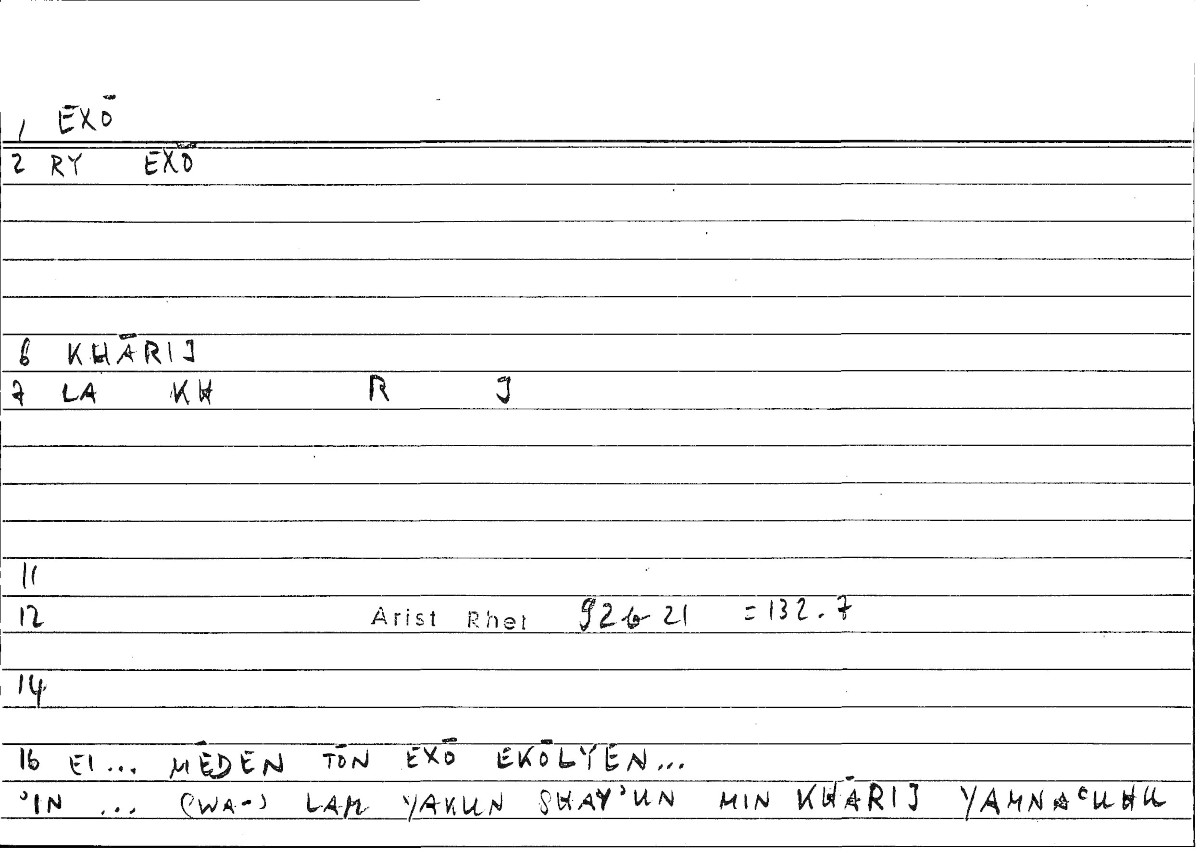 1 EXŌ
2 RY EXŌ
6 KHĀRIJ
7 LA KH R J
11
12 Arist Rhet 92b21 =132.7
14
16 EI... MĒDEN TŌN EXŌ EKŌLYEN...
'IN ... (WA-) LAM YAKUN SHAY'UN MIN KHĀRIJ YAMNAʿUHU